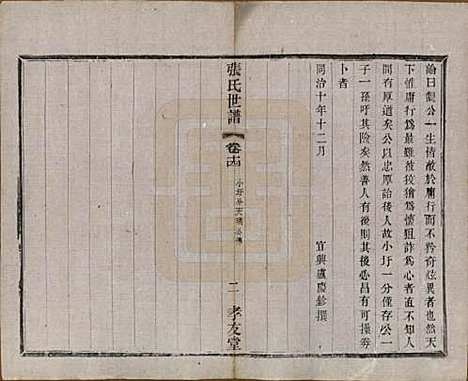 論曰觀公一生皆敵於庸行而不矜奇炫異者也然天
下惟庸行爲最難彼狡猾爲懷狙詐爲心者直不知人
間有厚道矣公以忠厚詒後人故小圩一分僅存公一
子一孫吁其險矣然善人有後則其後必昌可操劵
卜者
同治十年十二月
宜興盧慶鈖撰
張氏世譜
卷十四
二
孝友堂